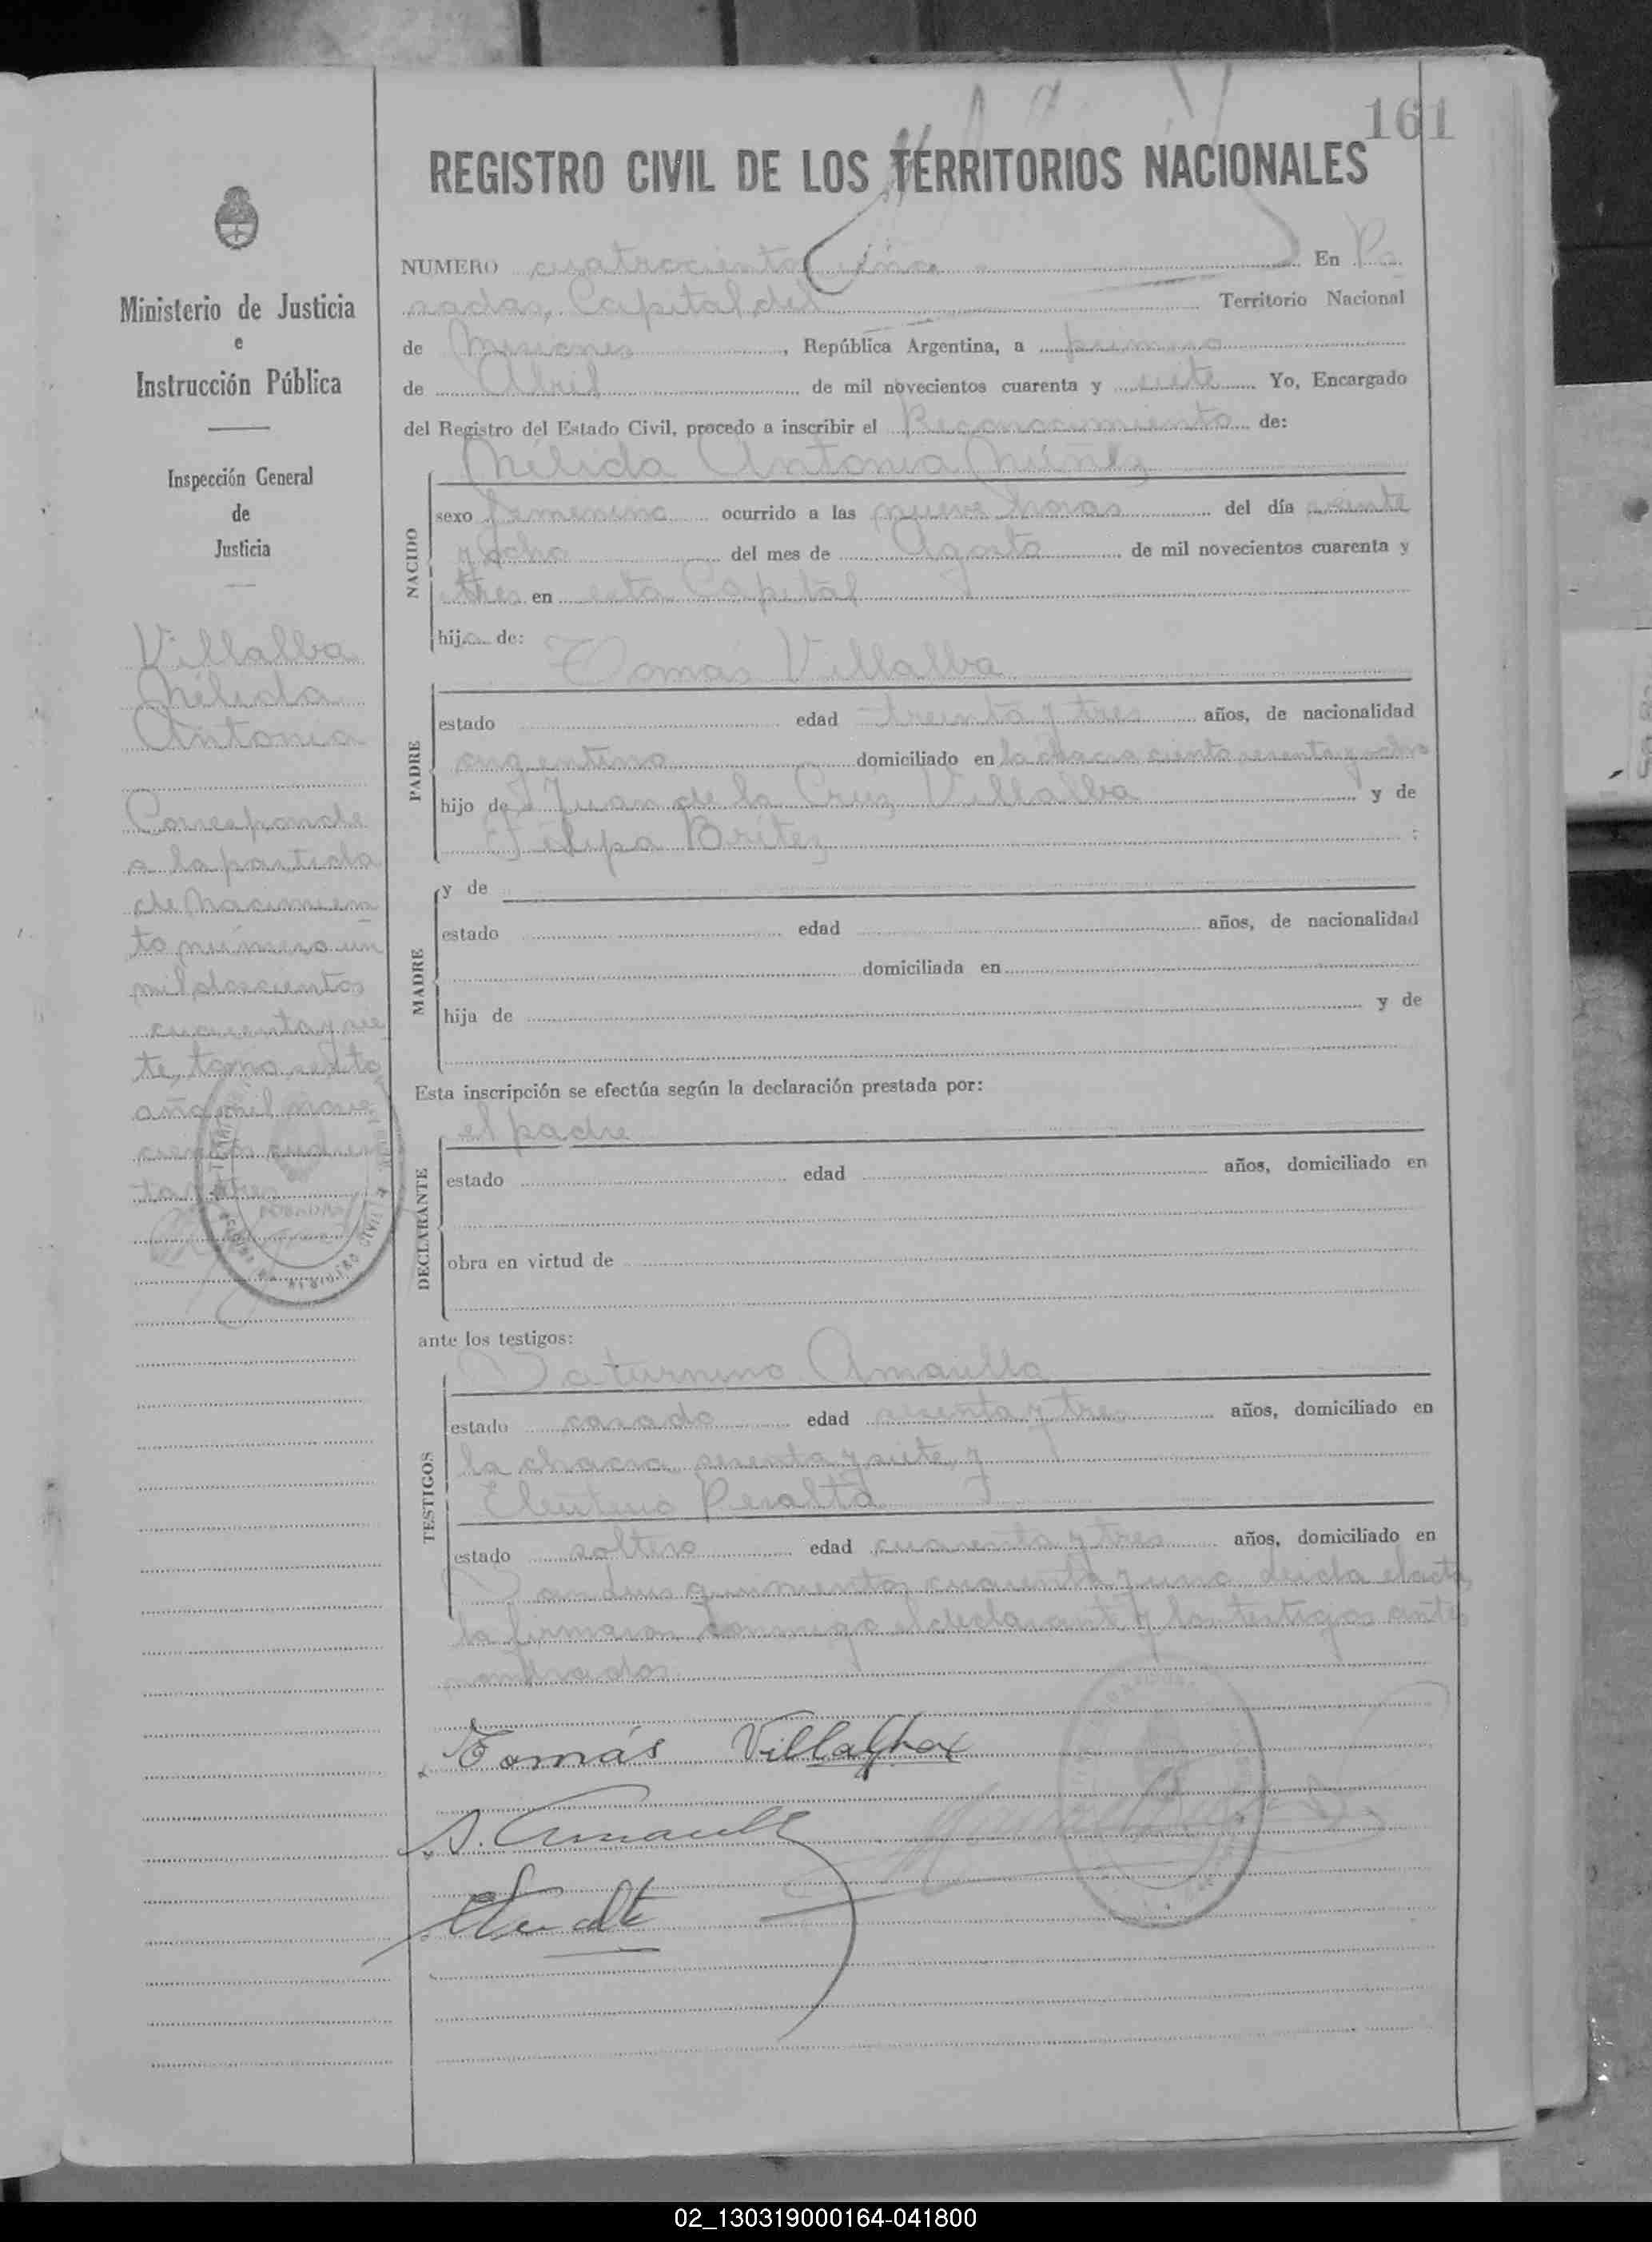 161
REGISTRO CIVIL DE LOS TERRITORIOS NACIONALES
NUMERO cuatrocientos uno En Po
sadas, Capital del Territorio Nacional
de Misiones, República Argentina, a primero
de Abril de mil novecientos cuarenta y siete Yo, Encargado
del Registro del Estado Civil, procedo a inscribir el Reconocimiento de:
Nélida Antonia Núñez
NACIDO
sexo femenino ocurrido a las nueve horas del día veinte
y ocho del mes de Agosto de mil novecientos cuarenta y
tres en esta Capital
hija de:
Tomás Villalba
PADRE
estado edad treinta y tres años, de nacionalidad
argentino domiciliado en la chacra ciento sesenta y ocho
hijo de Juan de la Cruz Villalba y de
Felipa Britez :
MADRE
y de
estado edad años, de nacionalidad
domiciliada en
hija de y de
Esta inscripción se efectúa según la declaración prestada por:
el padre
DECLARANTE
estado edad años, domiciliado en
obra en virtud de
ante los testigos:
Saturnino Amarilla
TESTIGOS
estado casado edad sesenta y tres años, domiciliado en
la chacra sesenta y siete, y
Eleuterio Peralta
estado soltero edad cuarenta y tres años, domiciliado en
San Luis quinientos cuarenta y uno. Leida el acta
la firmaron conmigo el declarante y los testigos antes
nombrados
Tomás Villalba
S. Amarilla
Ministerio de Justicia
e
Instrucción Pública
Inspección General
de
Justicia
Villalba
Nélida
Antonia
Corresponde
a la partida
de nacimien
to número un
mil doscientos
cuarenta y sie
te, tomo sexto
año mil nove
cientos cuaren
ta y tres
REGISTRO CIVIL
02_130319000164-041800